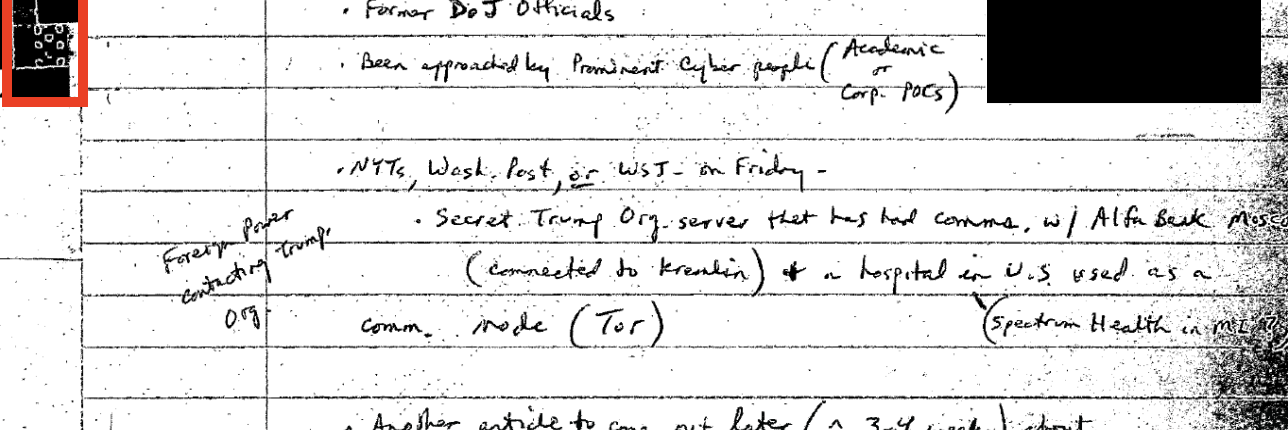 • Former DoJ Officials
• Been approached by Prominent Cyber people (Academic
or
Corp. POCs)
• NYTs, Wash. Post, or WSJ - on Friday -
• Secret Trump Org. server that has had comms. w/ Alfa Bank Mosc
Foreign Power
contacting Trump.
Org.
(connected to Kremlin) + a hospital in U.S used as a
comm. node (Tor)
(Spectrum Health in MI
• Another article to come out later (~ 3-4 weeks) about